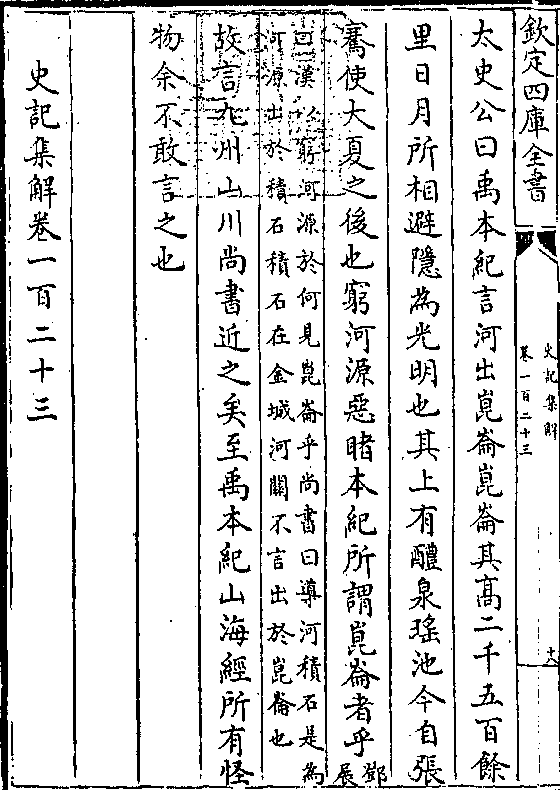 欽定四庫全書
史記集解
卷一百二十三
十八
太史公曰禹本紀言河出崑崙崑崙其髙二千五百餘
里日月所相避隱為光明也其上有醴泉瑶池今自張
騫使大夏之後也窮河源惡睹本紀所謂崑崙者乎鄧展
曰漢以窮河源於何見崑崙乎尚書曰導河積石是為
河源出於積石積石在金城河關不言出於崑崙也
故言九州山川尚書近之矣至禹本紀山海經所有怪
物余不敢言之也
史記集解卷一百二十三